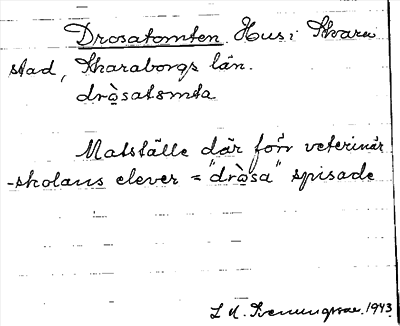 Drosatomten. Hus i Skara
stad, Skaraborgs län.
dròsatomta
Matställe där förr veterinär
-skolans elever = "dròsa" spisade
1943